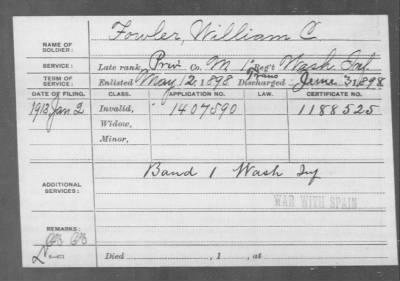 NAME OF SOLDIER: Fowler, William C
SERVICE: Late rank, Priv Co. M, 1 Reg't Wash Inf.
TERM OF SERVICE: Enlisted May 12 1898 Trans Discharged June 3, 1898
DATE OF FILING. CLASS. APPLICATION NO. LAW. CERTIFICATE NO.
1913 Jan 2 Invalid, 1407590 1188525
Widow,
Minor,
ADDITIONAL SERVICES: Band 1 Wash Inf
WAR WITH SPAIN
REMARKS:
Died , 1 , at